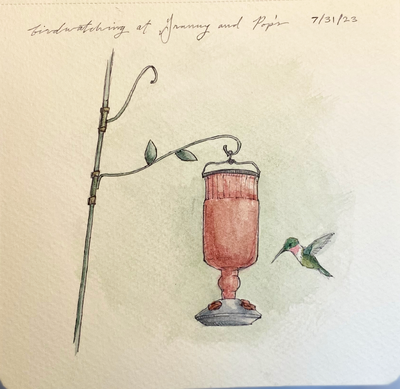 birdwatching at Granny and Pop's 7/31/23